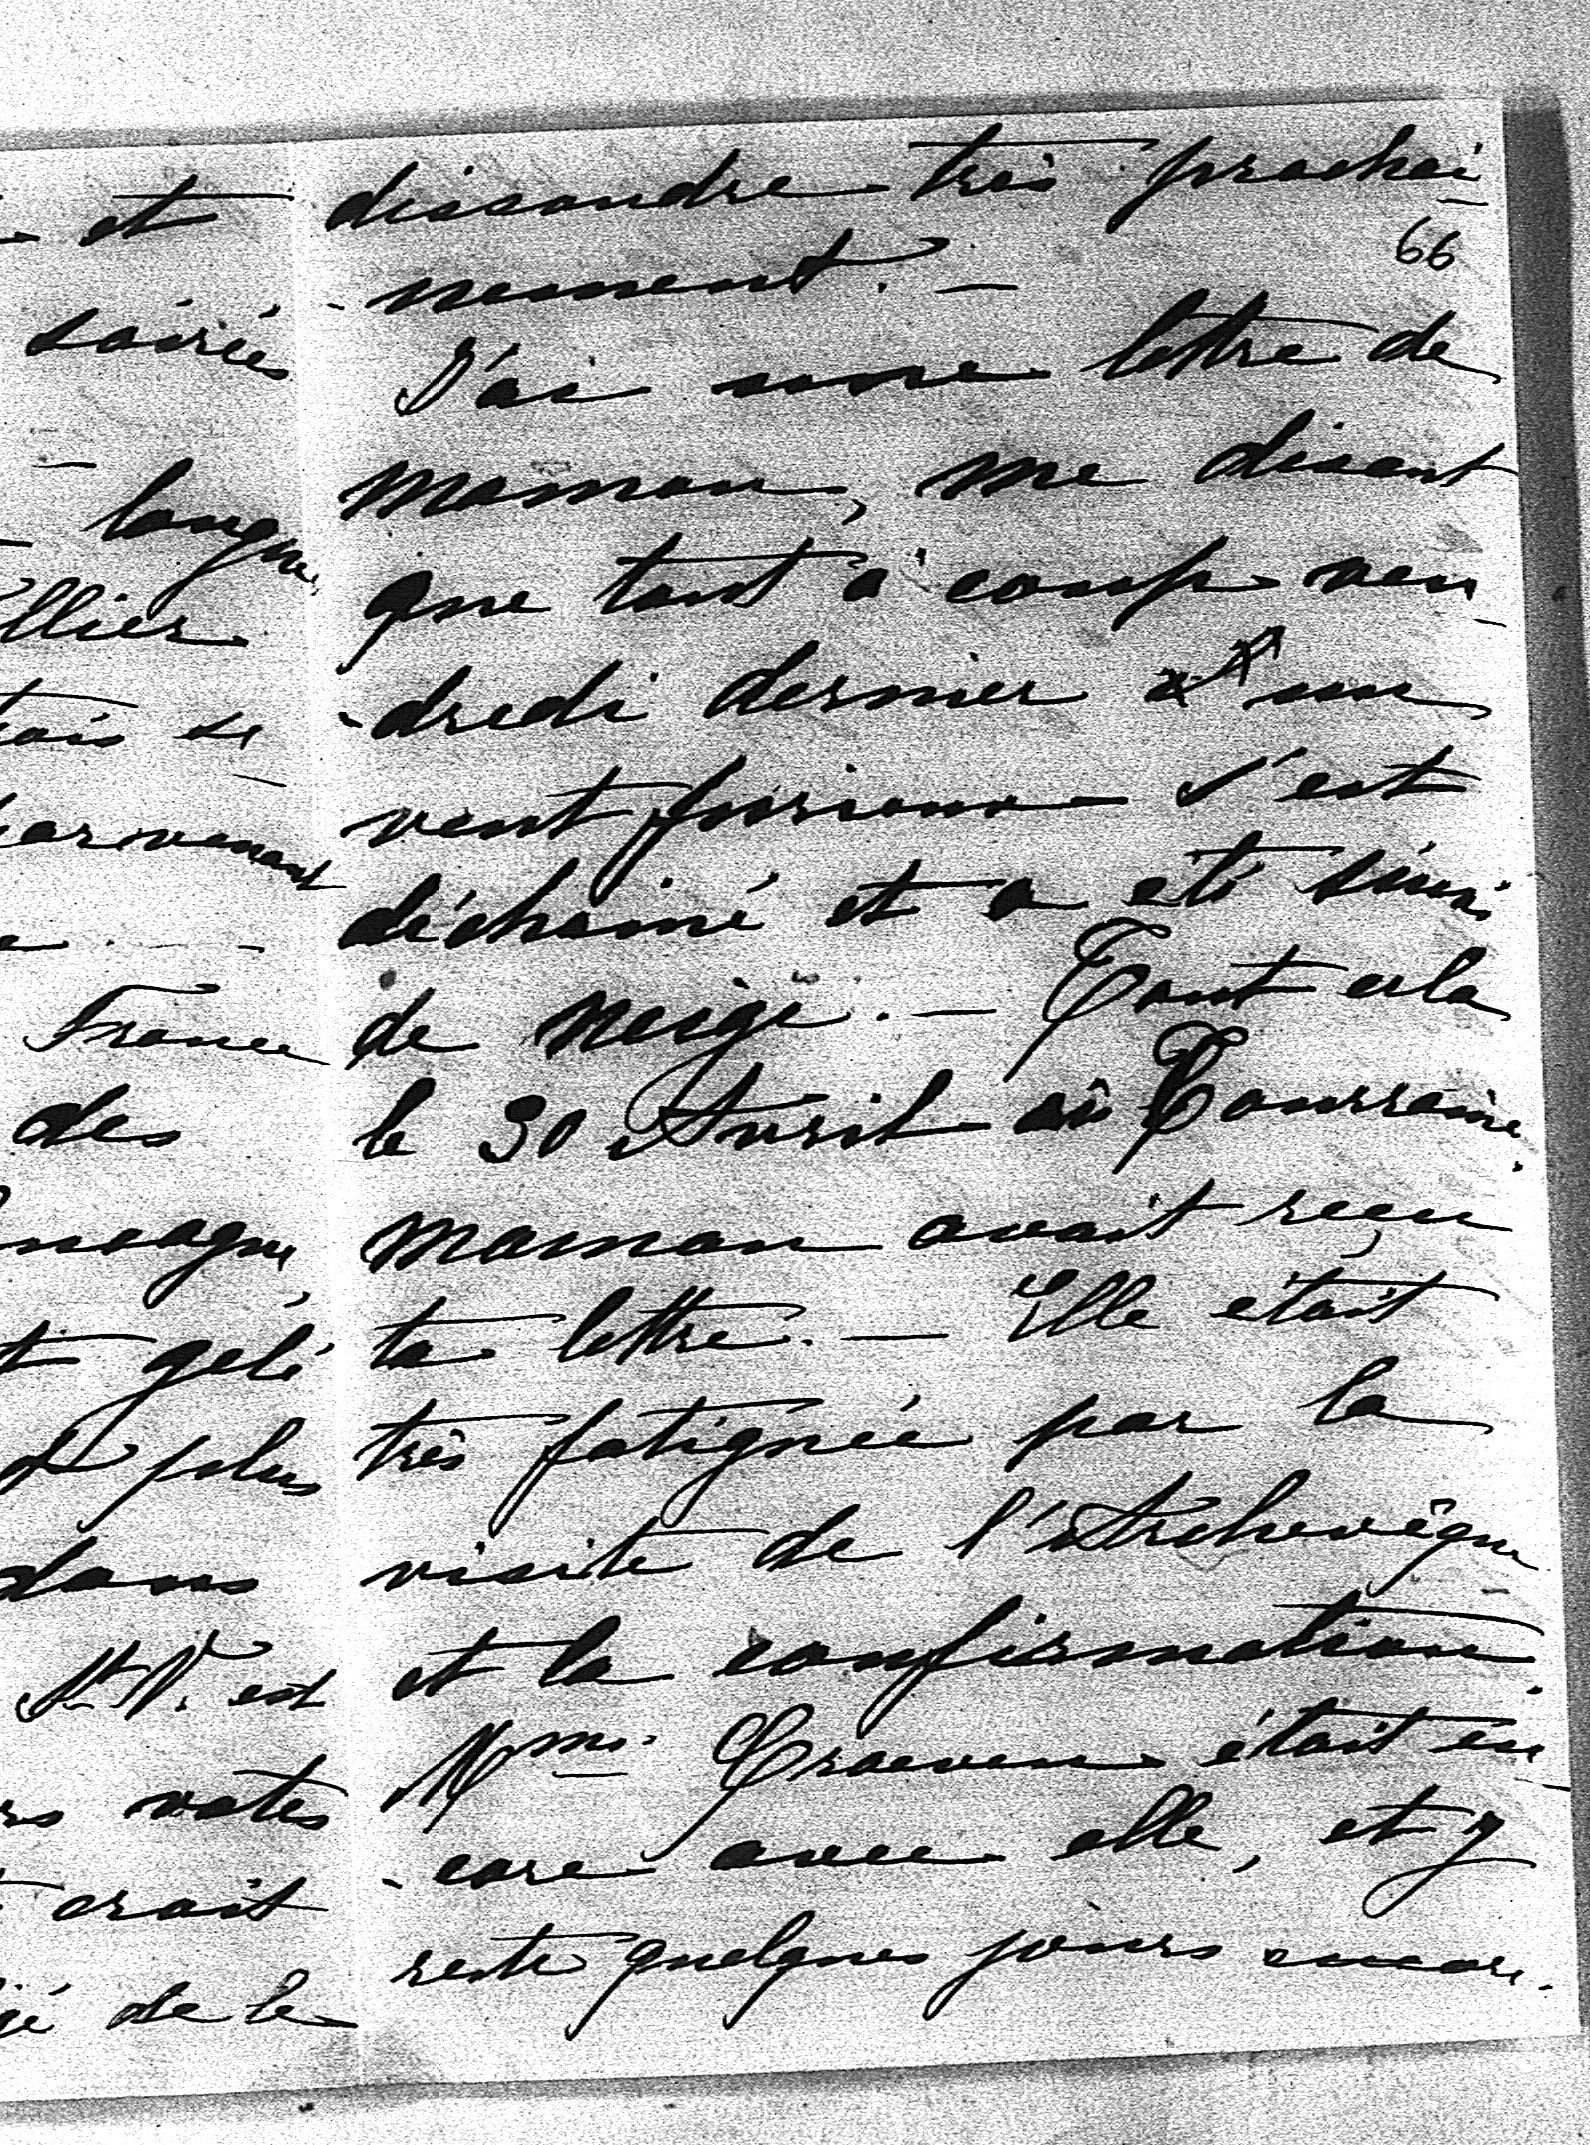 et
soirées
longue
llier
tais se
ar venant
France
des
gelé
plus
dans
St V. est
votes
croit
gé de le
dissoudre très prochai-
66
-nement. —
J'ai une lettre de
maman, me disant
que tout à coup ven-
-dredi dernier un
vent furieux s'est
déchainé et a été suivi
de neige. — Tout cela
le 30 Avril en Tourraine.
maman avait reçu
ta lettre. — Elle était
très fatiguée par la
visite de l'Archevêque
et la confirmation.
Mme Craeven était en-
-core avec elle, et y
reste quelques jours encore.